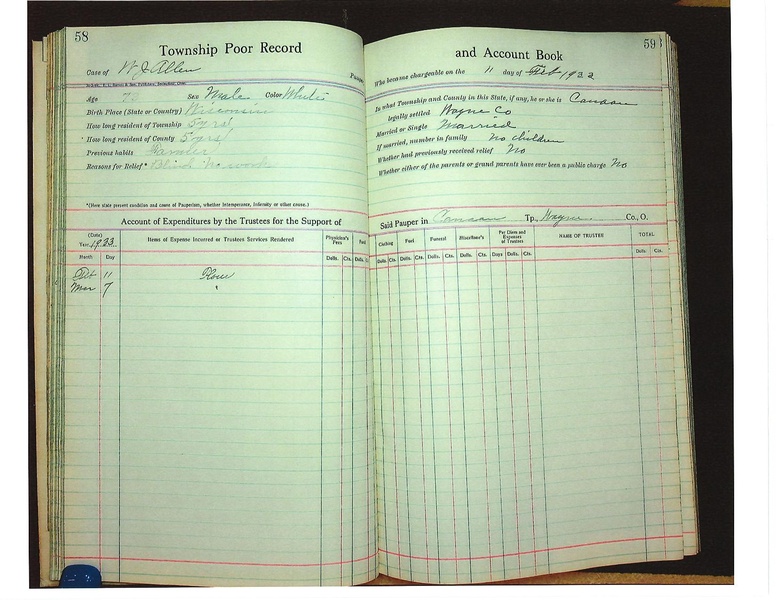 58
Township Poor Record
Case of W. J. Allen Pauper
Age 73 Sex Male Color White
Birth Place (State or Country) Wisconsin
How long resident of Township 5 yrs
How long resident of County 5 yrs
Previous habits
Reasons for Relief* Blind no work
*(Here state present condition and cause of Pauperism, whether Intemperance, Indemnity or other cause.)
Account of Expenditures by the Trustees for the Support of
(Date)
Year, 1933
Items of Expense Incurred or Trustees Services Rendered
Physician's Fees
Food
Month Day Dolls. Cts. Dolls. C
Feb 11 Flour
Mar 7 "
59
and Account Book
Who became chargeable on the 11 day of Feb 1932
In what Township and County in this State, if any, he or she is Canaan
legally settled Wayne Co
Married or Single Married
If married, number in family No children
Whether had previously received relief No
Whether either of the parents or grand parents have ever been a public charge No
Said Pauper in Canaan Tp., Wayne Co., O.
Clothing Fuel Funeral Miscellan's Per Diem and Expenses of Trustees NAME OF TRUSTEE TOTAL
Dolls. Cts. Dolls. Cts. Dolls. Cts. Dolls. Cts. Days Dolls. Cts. Dolls. Cts.